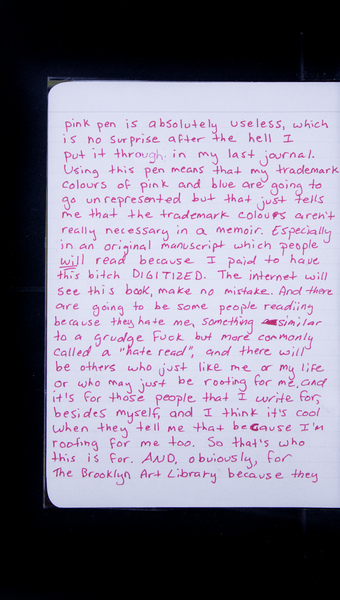 pink pen is absolutely useless, which
is no surprise after the hell I
put it through in my last journal.
Using this pen means that my trademark
colours of pink and blue are going to
go unrepresented but that just tells
me that the trademark colours aren't
really necessary in a memoir. Especially
in an original manuscript which people
will read because I paid to have
this bitch DIGITIZED. The internet will
see this book, make no mistake. And there
are going to be some people readiing
because they hate me, something similar
to a grudge fuck but more commonly
called a "hate read", and there will
be others who just like me or my life
or who may just be rooting for me, and
it's for those people that I write for,
besides myself, and I think it's cool
when they tell me that because I'm
rooting for me too. So that's who
this is for. AND, obviously, for
The Brooklyn Art Library because they